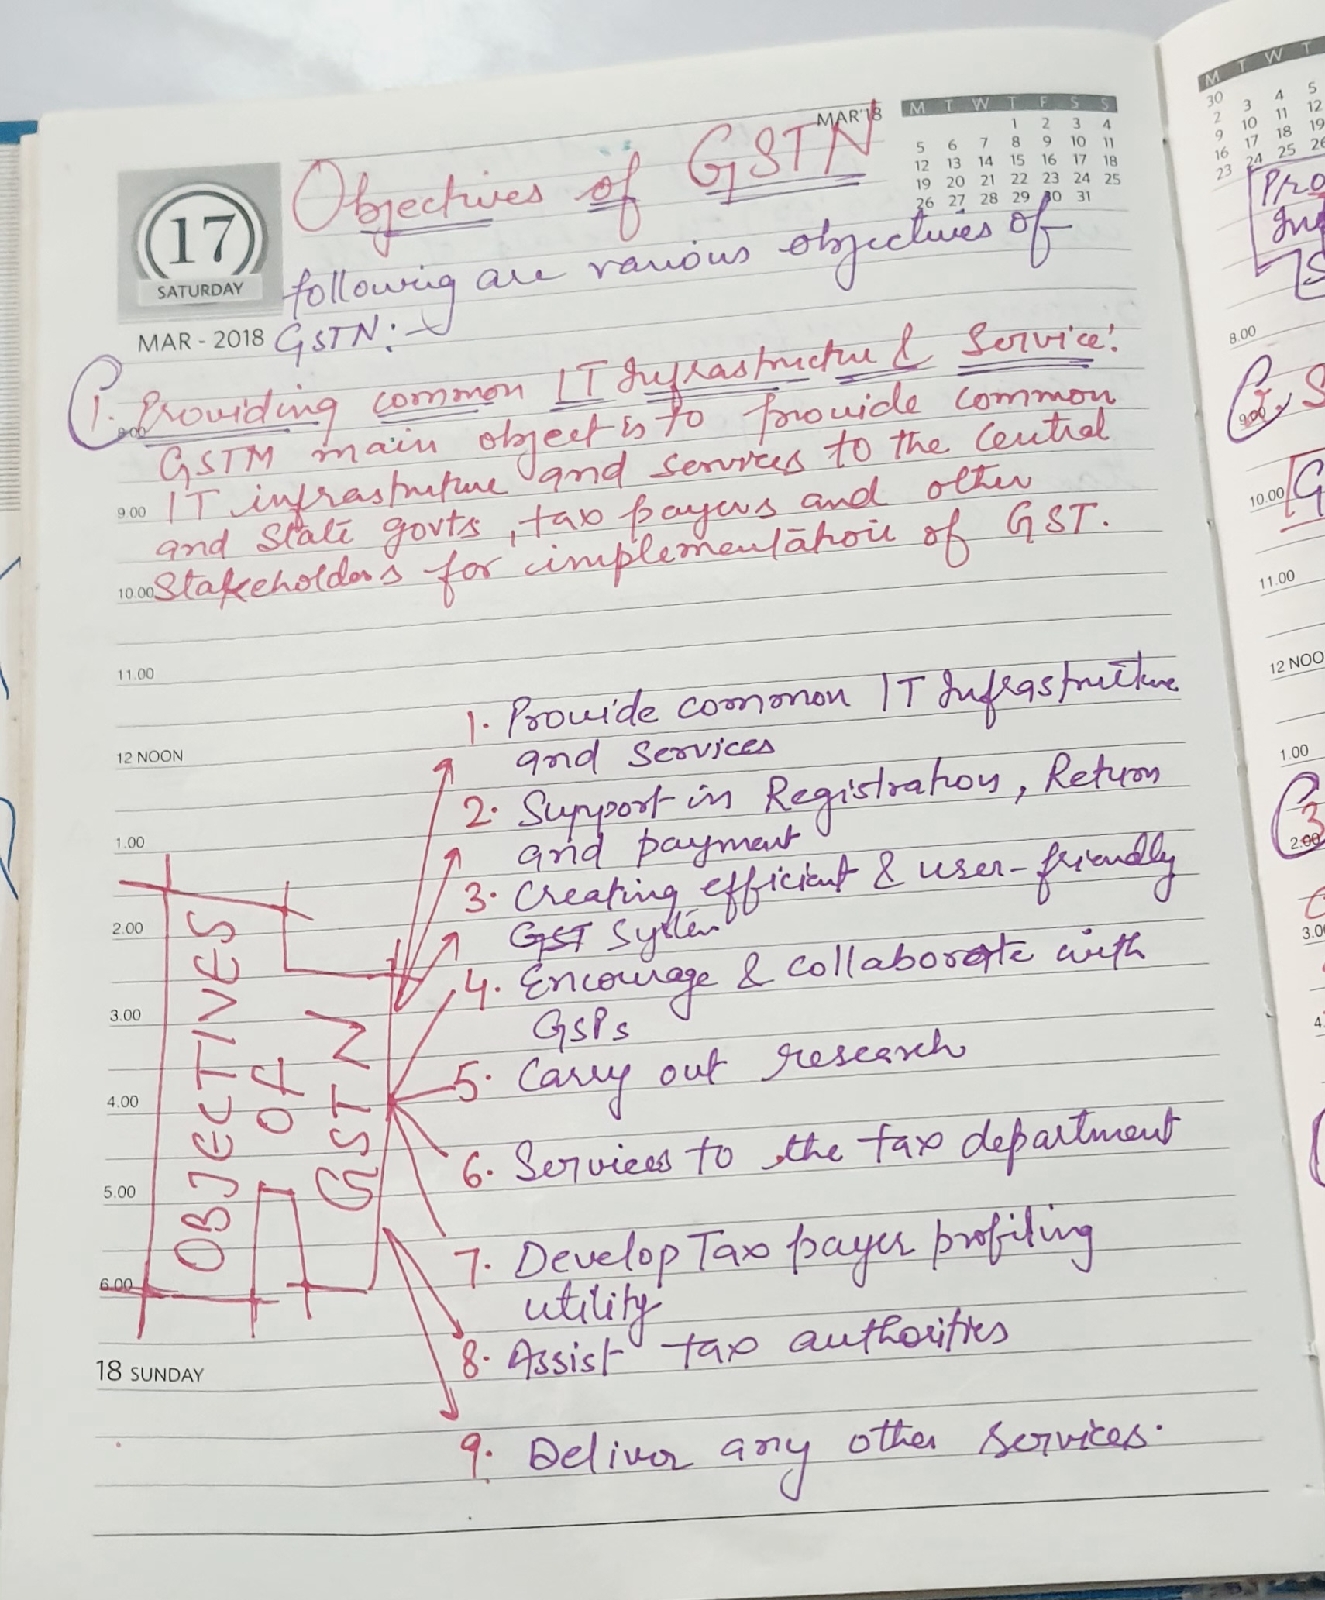 MAR'18
M T W T F S S
1 2 3 4
5 6 7 8 9 10 11
12 13 14 15 16 17 18
19 20 21 22 23 24 25
26 27 28 29 30 31
Objectives of GSTN
17
SATURDAY
MAR - 2018
following are various objectives of
GSTN:-
1. Providing common IT Infrastructure & Service:
GSTM main object is to provide common
IT infrastructure and services to the Central
9.00
and State govts, tax payers and other
Stakeholders for implementation of GST.
10.00
11.00
1. Provide common IT Infrastructure
and Services
12 NOON
2. Support in Registration, Return
and payment
1.00
3. Creating efficient & user-friendly
GST System
2.00
4. Encourage & collaborate with
GSPs
3.00
5. Carry out research
4.00
6. Services to the tax department
5.00
7. Develop Tax payer profiling
utility
6.00
8. Assist tax authorities
18 SUNDAY
9. Deliver any other services.
OBJECTIVES
OF
GSTN
M T W T
30
2 3 4 5
9 10 11 12
16 17 18 19
23 24 25 26
Pro
8.00
9.00
10.00
11.00
12 NOO
1.00
2.00
3.0